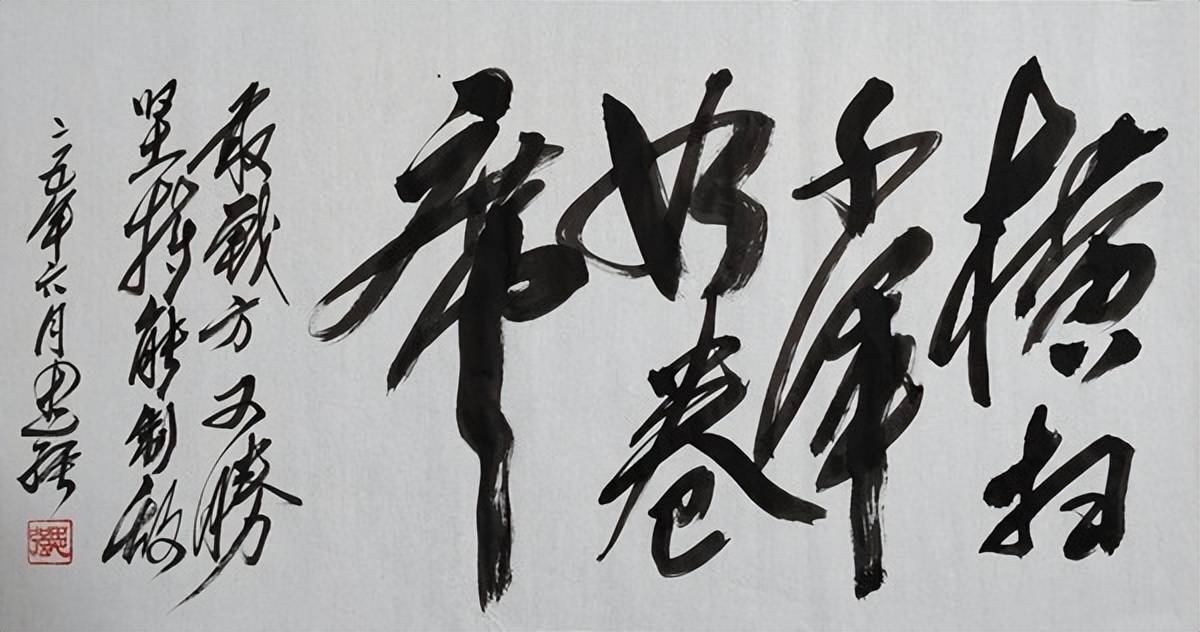 横扫
千军
如卷
席
敢战方又胜
坚持能制敌
二一五年六月思强
思强